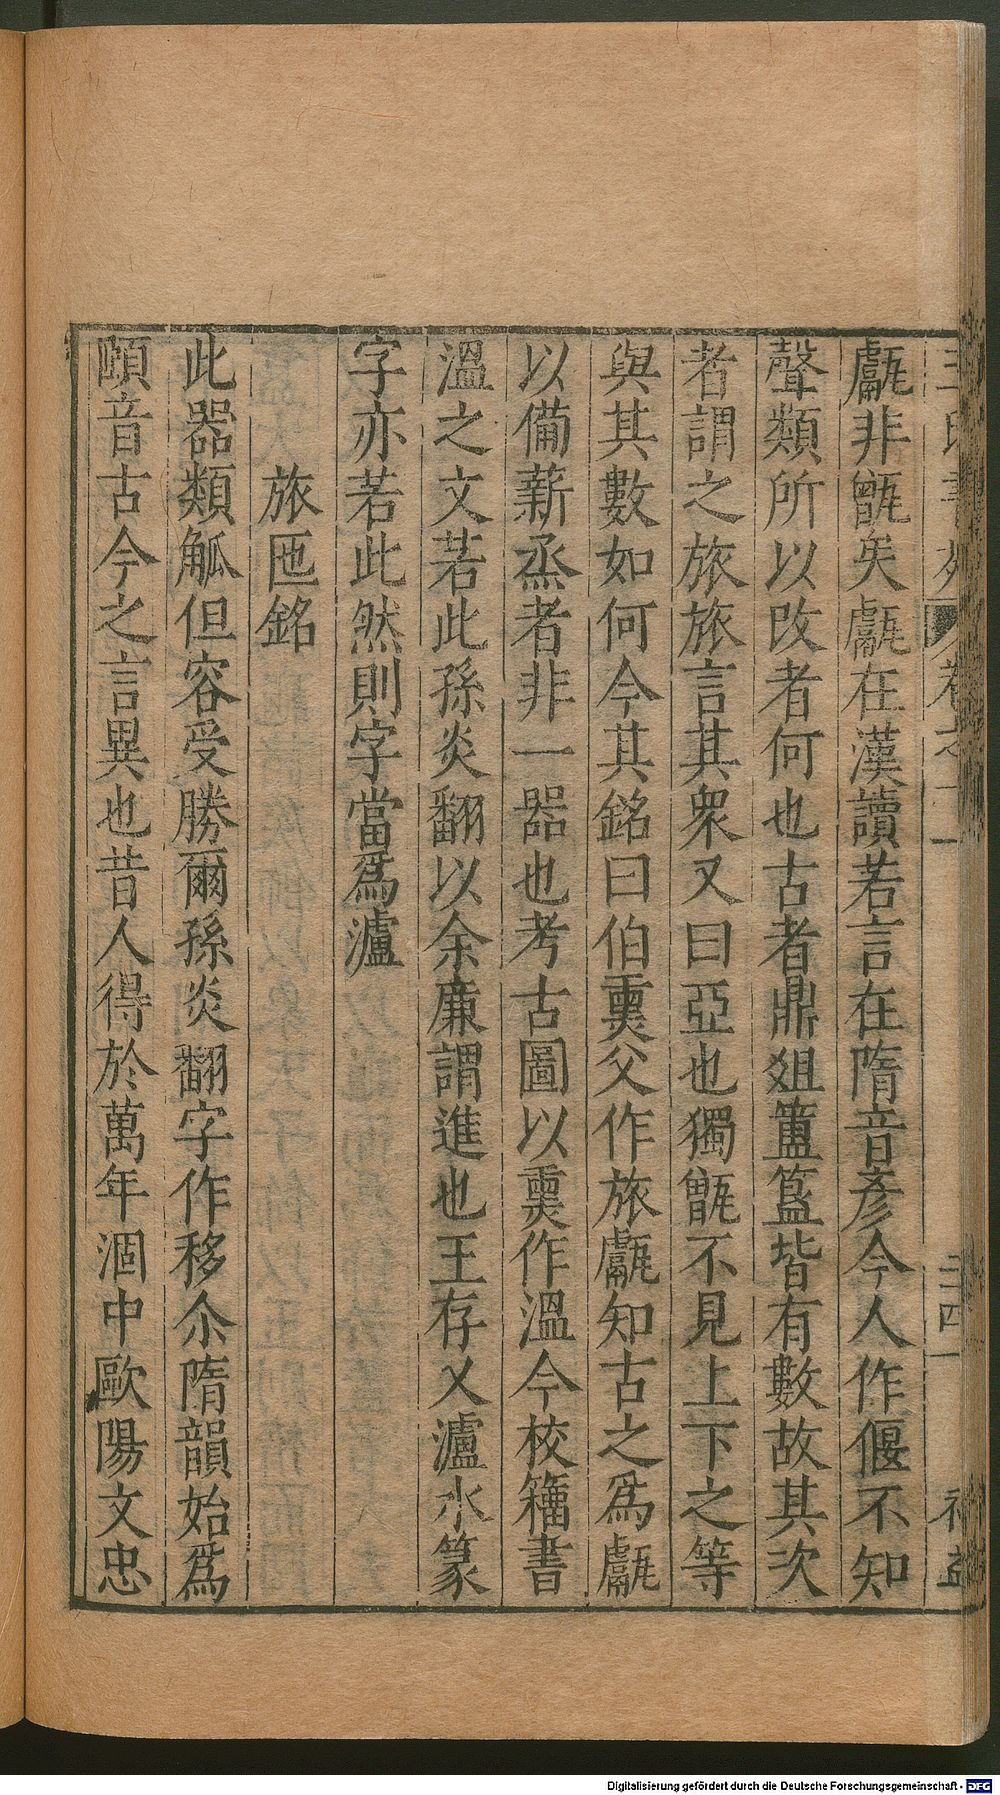 甗非甑矣甗在漢讀若言在隋音彥今人作偃不知
聲類所以改者何也古者鼎俎簠簋皆有數故其次
者謂之旅旅言其衆又曰亞也獨甑不見上下之等
與其數如何今其銘曰伯𤍽父作旅甗知古之爲甗
以備薪烝者非一器也考古圖以𤍽作溫今校籀書
溫之文若此孫炎翻以余廉謂進也王存乂瀘水篆
字亦若此然則字當爲瀘
旅匜銘
此器類觚但容受勝爾孫炎翻字作移尒隋韻始爲
頤音古今之言異也昔人得於萬年涸中歐陽文忠
卷之十一
Digitalisierung gefördert durch die Deutsche Forschungsgemeinschaft - DFG